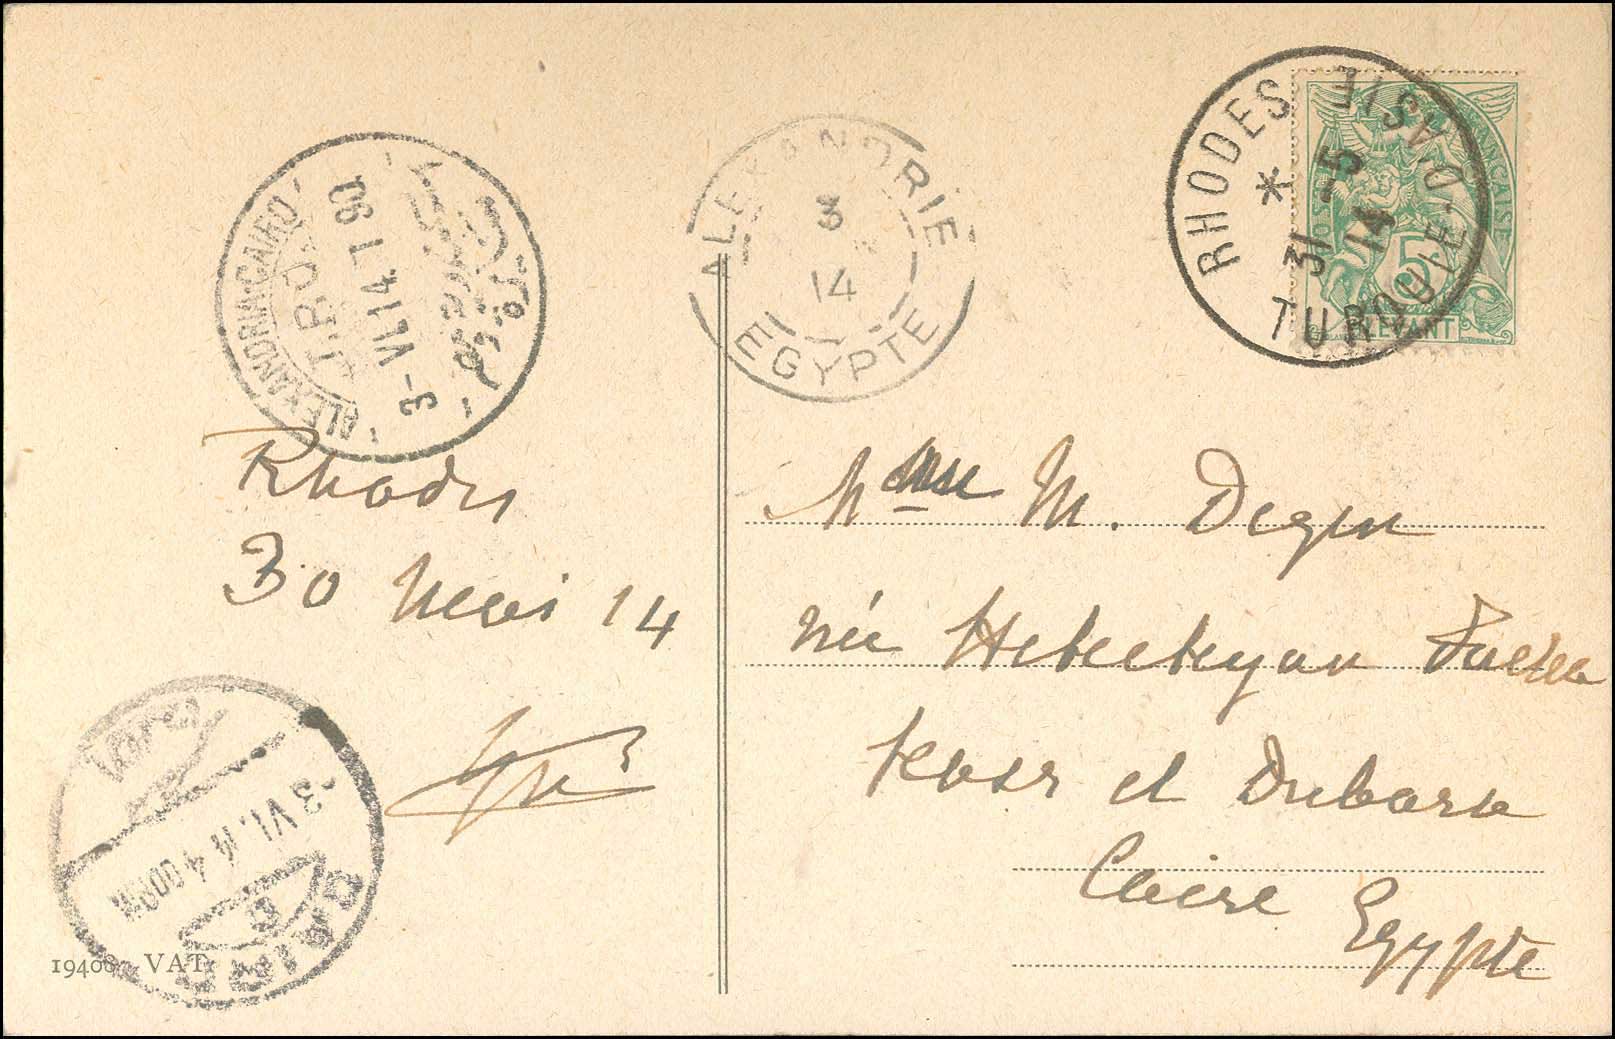 RHODES * TURQUIE-D'ASIE
31 -5
14
5
LEVANT
ALEXANDRIE
3
14
EGYPTE
ALEXANDRIA-CAIRO
T.P.O.
3-VI.14.T 90
Rhodes
30 Mai 14
Mme M. Degen
née Hekekyan Pacha
Kasr el Dubara
Caire Egypte
3 VI.14 4
CAIRO
19400 VAT